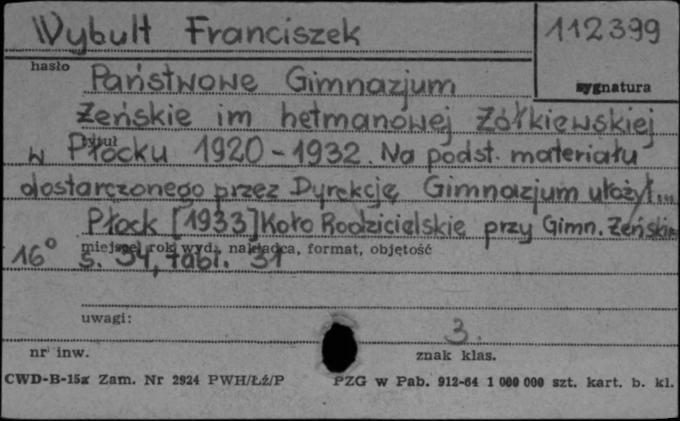 Wybult Franciszek
112399
hasło
sygnatura
Państwowe Gimnazjum
Żeńskie im hetmanowej Żółkiewskiej
tytuł
w Płocku 1920-1932. Na podst. materiału
dostarczonego przez Dyrekcję Gimnazjum ułożył...
Płock [1933] Koło Rodzicielskie przy Gimn. Żeńskim
miejsce, rok wyd., nakładca, format, objętość
16° s. 54, tabl. 31
uwagi:
3.
nr inw.
znak klas.
CWD-B-15a Zam. Nr 2924 PWH/Łź/P
PZG w Pab. 912-64 1 000 000 szt. kart. b. kl.